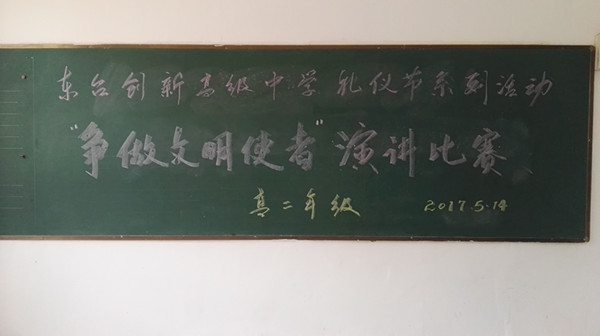 东台创新高级中学礼仪节系列活动
“争做文明使者”演讲比赛
高二年级 2017.5.14